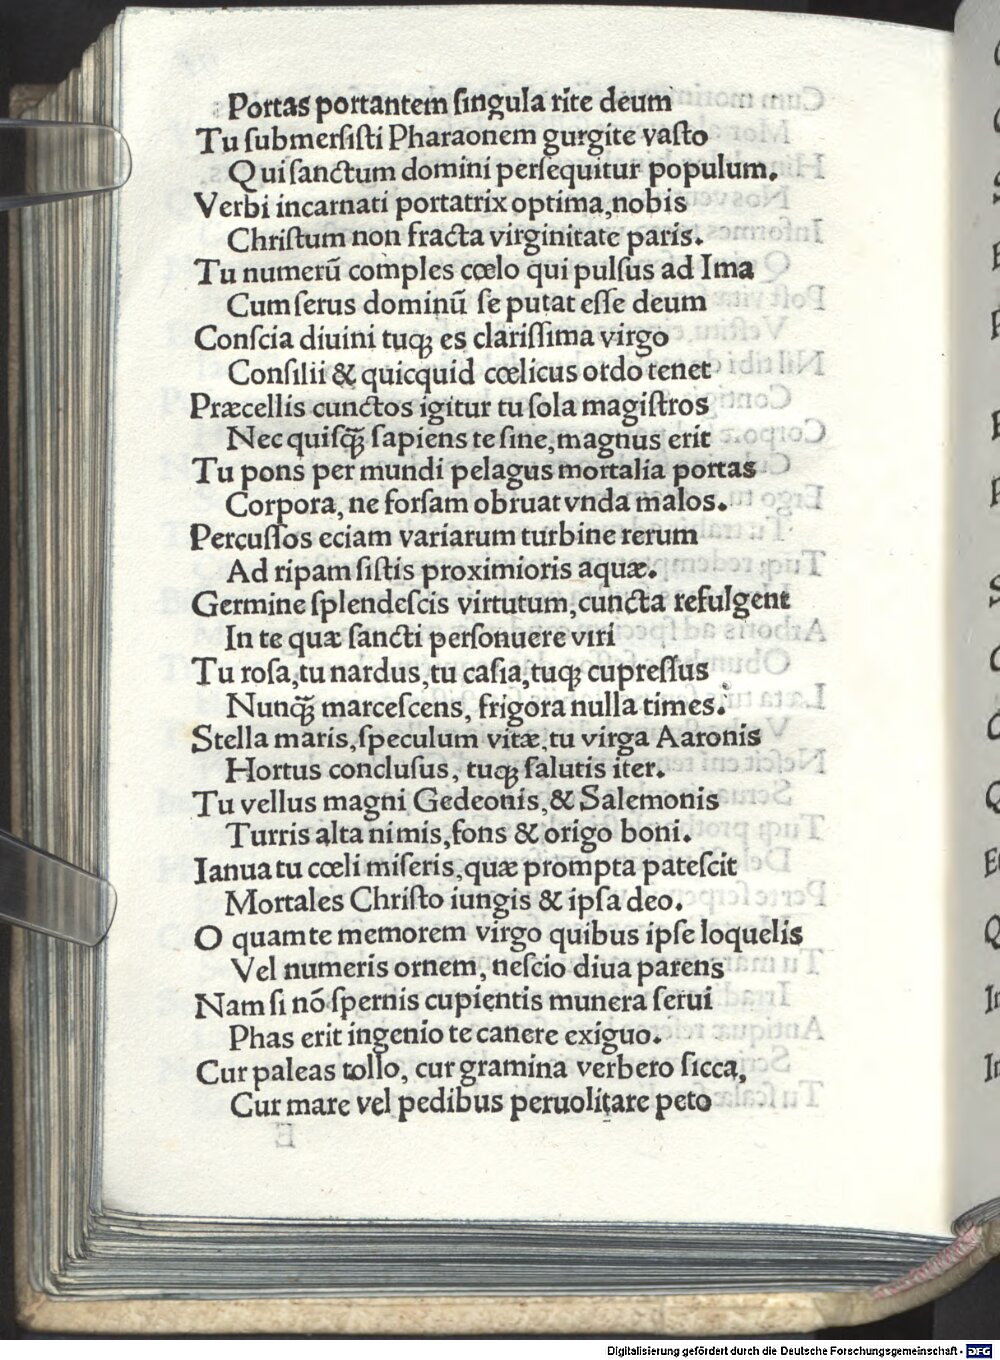 Portas portantem ſingula rite deum
Tu ſubmerſiſti Pharaonem gurgite vaſto
Qui ſanctum domini perſequitur populum.
Verbi incarnati portatrix optima, nobis
Chriſtum non fracta virginitate paris.
Tu numerū comples cœlo qui pulſus ad Ima
Cum ſerus dominū ſe putat eſſe deum
Conſcia diuini tuqꝫ es clariſſima virgo
Conſilii & quicquid cœlicus ordo tenet
Præcellis cunctos igitur tu ſola magiſtros
Nec quiſqꝫ̃ ſapiens te ſine, magnus erit
Tu pons per mundi pelagus mortalia portas
Corpora, ne forſam obruat vnda malos.
Percuſſos eciam variarum turbine rerum
Ad ripam ſiſtis proximioris aquæ.
Germine ſplendeſcis virtutum, cuncta refulgent
In te quæ ſancti perſonuere viri
Tu roſa, tu nardus, tu caſia, tuqꝫ cupreſſus
Nunqꝫ̃ marceſcens, frigora nulla times.
Stella maris, ſpeculum vitæ, tu virga Aaronis
Hortus concluſus, tuqꝫ ſalutis iter.
Tu vellus magni Gedeonis, & Salemonis
Turris alta nimis, fons & origo boni.
Ianua tu cœli miſeris, quæ prompta pateſcit
Mortales Chriſto iungis & ipſa deo.
O quam te memorem virgo quibus ipſe loquelis
Vel numeris ornem, neſcio diua parens
Nam ſi nō ſpernis cupientis munera ſerui
Phas erit ingenio te canere exiguo.
Cur paleas tollo, cur gramina verbero ſicca,
Cur mare vel pedibus peruolitare peto
Digitalisierung gefördert durch die Deutsche Forschungsgemeinschaft - DFG